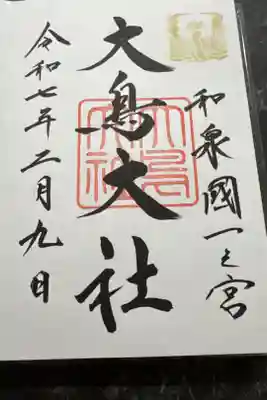 和泉國一之宮
大鳥大社
大鳥大社
令和七年二月九日